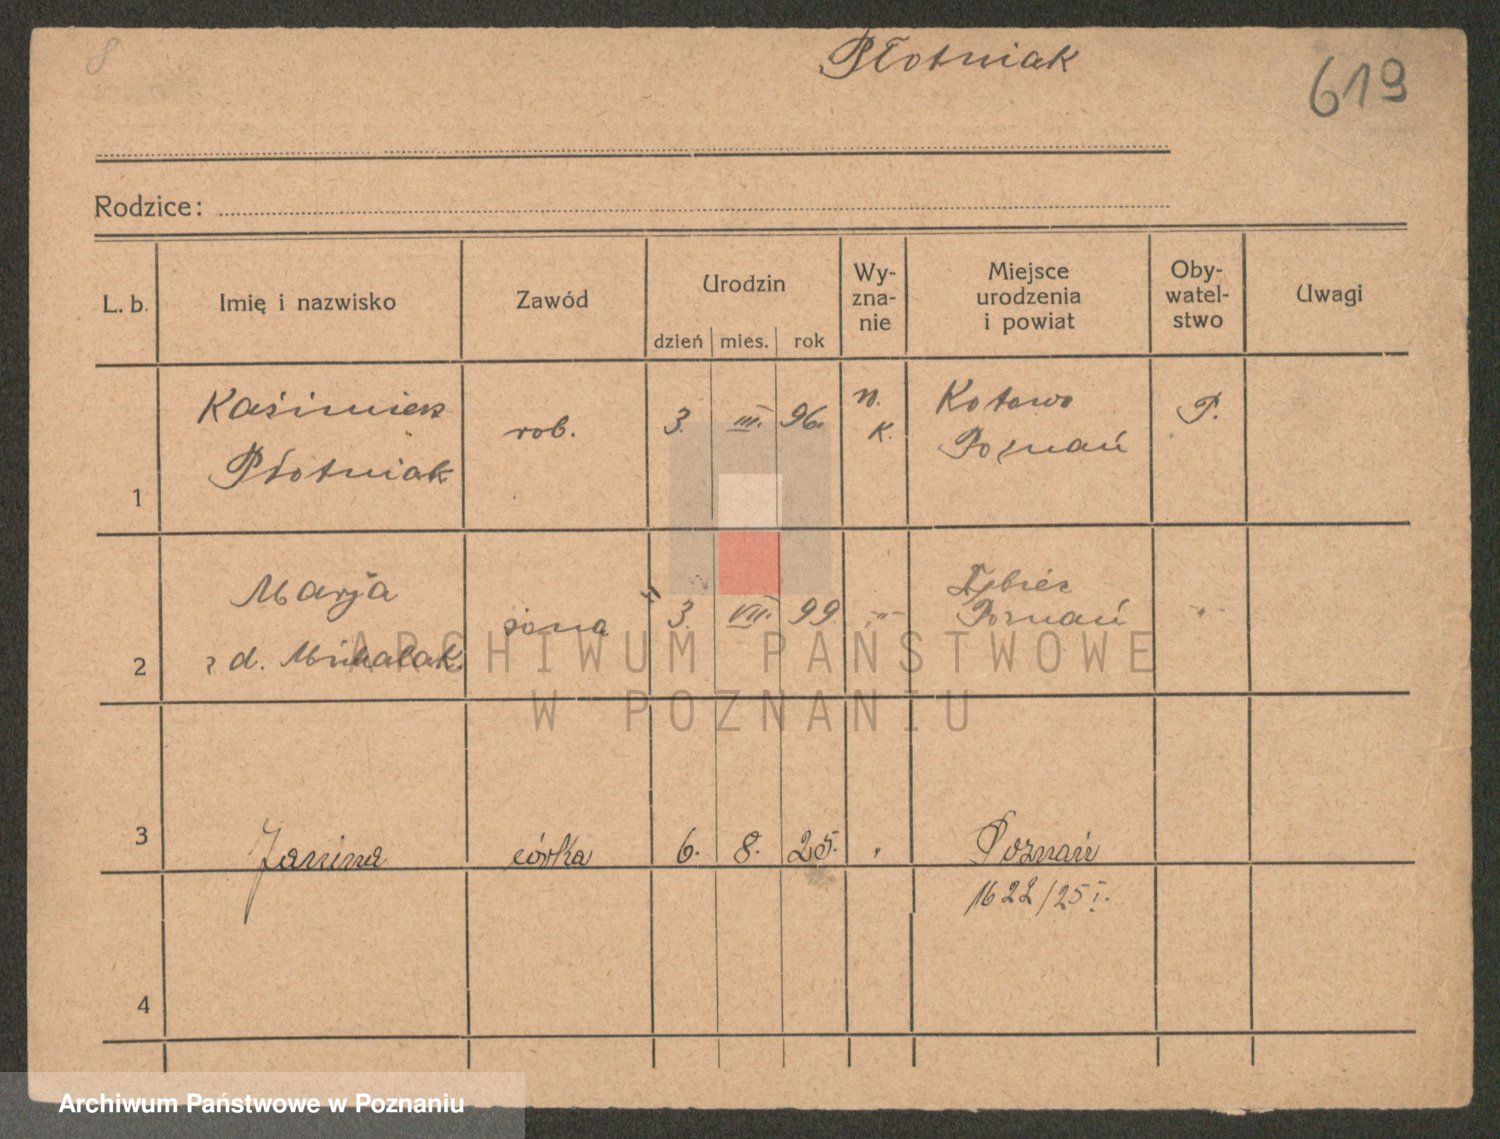 8
Płotniak
619
Rodzice:
L. b.
Imię i nazwisko
Zawód
Urodzin
dzień
mies.
rok
Wy-
zna-
nie
Miejsce
urodzenia
i powiat
Oby-
watel-
stwo
Uwagi
1
Kaźimierz
Płotniak
rob.
3.
III.
96.
K.
Kotowo
Poznań
P.
2
Marja
z d. Michalak.
żona
3.
VII.
99.
-„-
Poznań
„
3
Janina
córka
6.
8.
25.
„
Poznań
1622/25 I.
4
ARCHIWUM PAŃSTWOWE
W POZNANIU
Archiwum Państwowe w Poznaniu